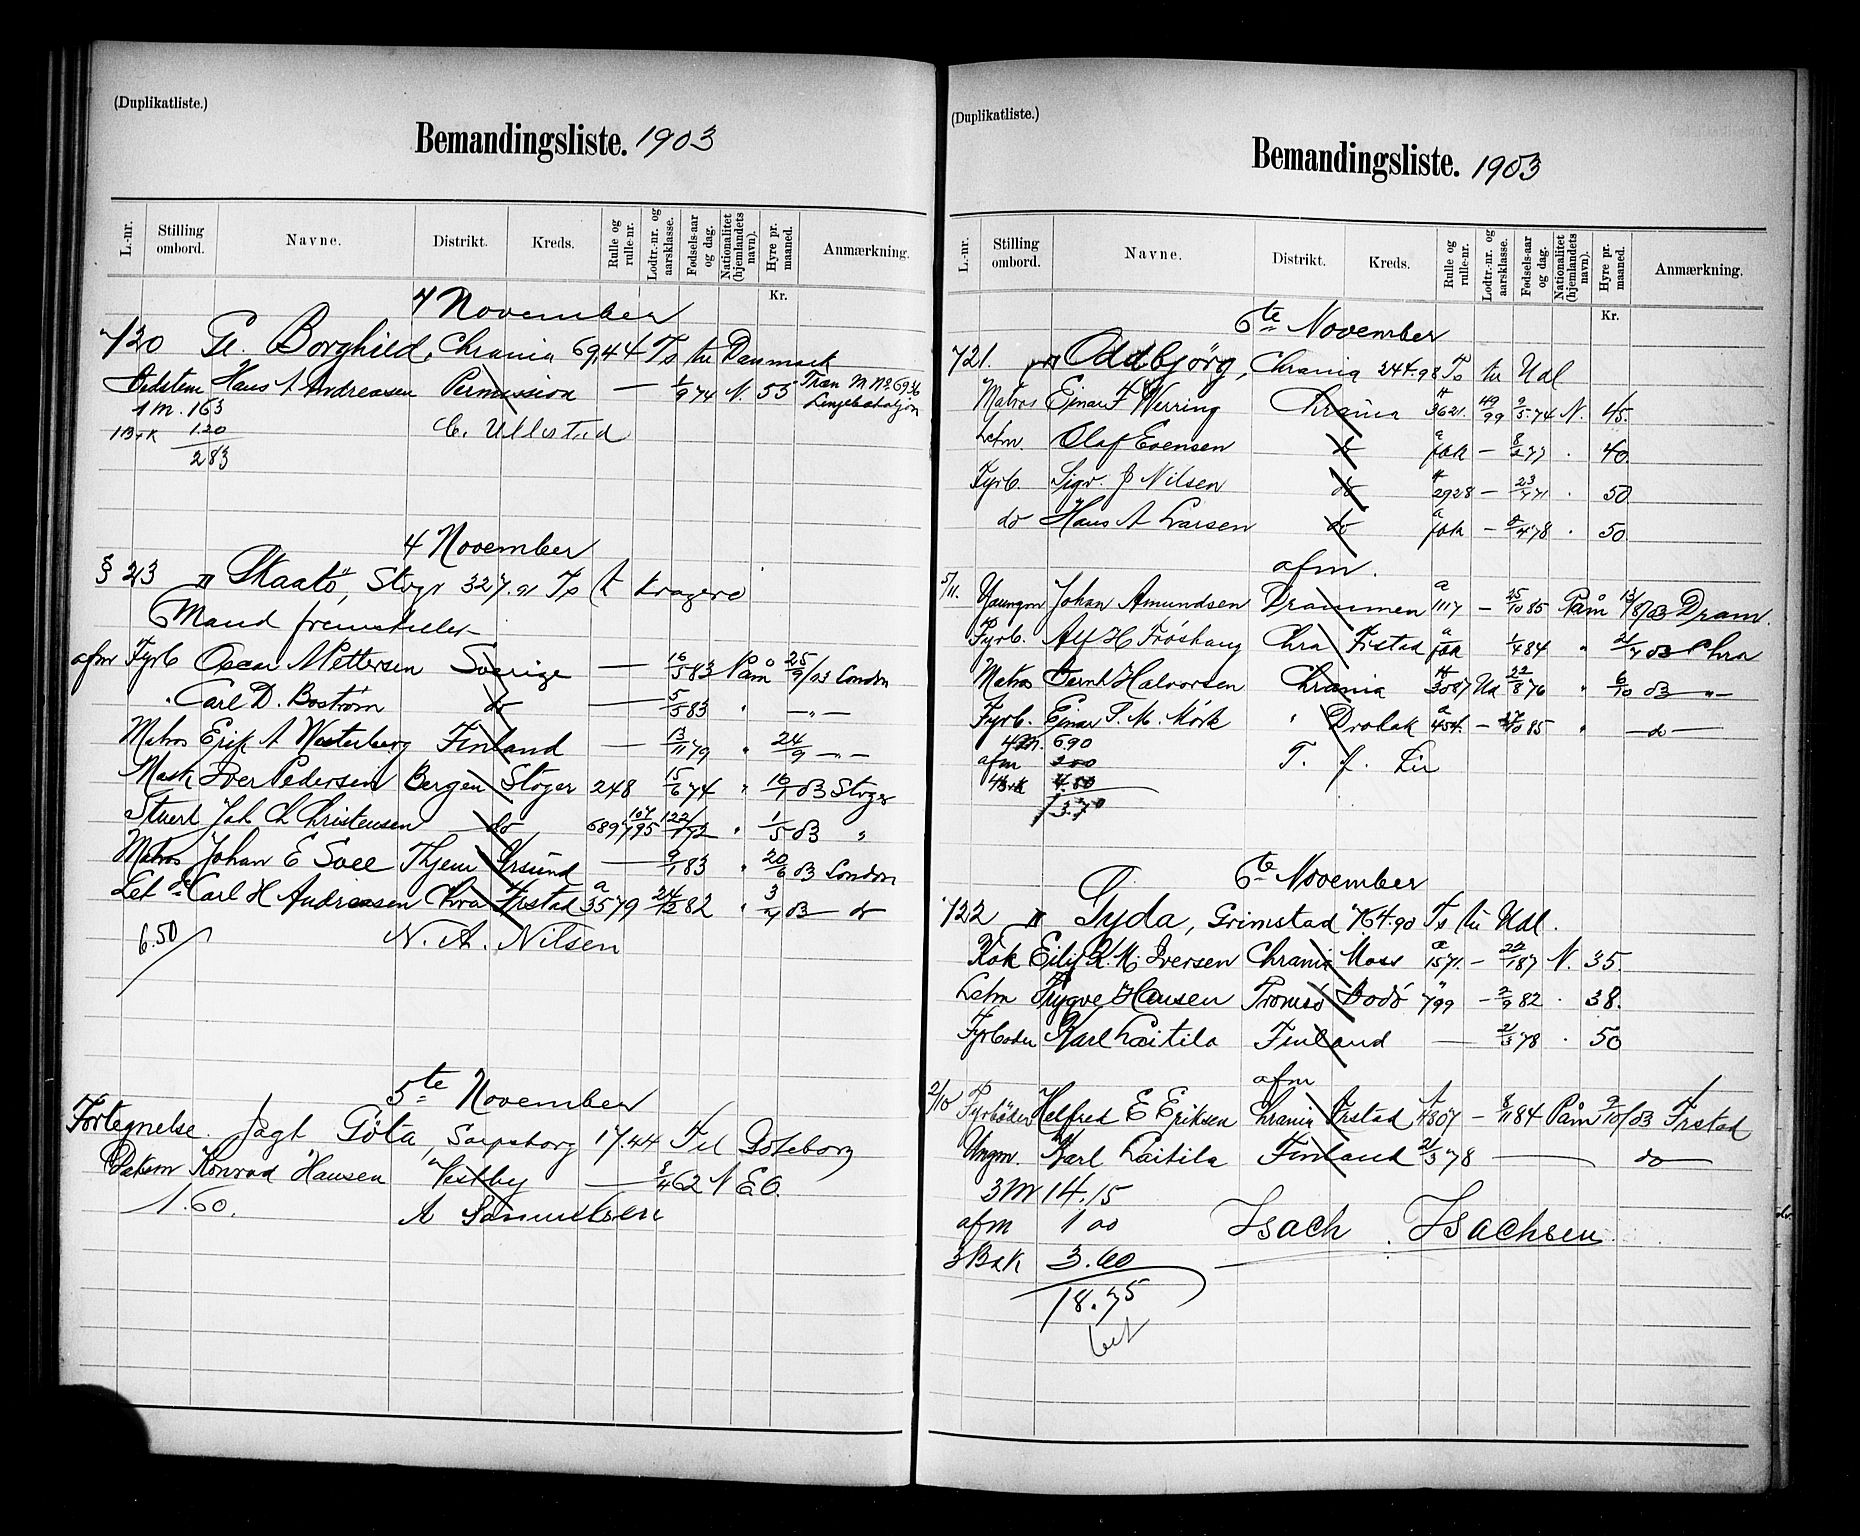 (Duplikatliste.)
Bemandingsliste. 1903
L.-nr. Stilling ombord. Navne. Distrikt. Kreds. Rulle og rulle-nr. Lodtr.-nr. og aarsklasse. Fødsels-aar og dag. Nationalitet (hjemlandets navn). Hyre pr. maaned. Anmærkning.
Kr.
4 November
720 Gl. Borghild, Chrania 69,44 Ts til Danmark
Bedstem Hans A Andreasen Permission — 1/9 74 N. 55 Træn M No 6936
1 M. 163
1 B.k 1.20 C. Ullestad
283
4 November
§ 23 " Skaatö, Stvgr 327.91 Ts t Kragerö
Mand fremstilles
afm Fyrb Oscar A Pettersen Sverige — 16/5 83 Paam 25/9/03 London
" Carl D. Boström do — 5/5 83 " — " —
Matros Erik A Westerberg Finland — 13/11 79 " 24/9 — " —
Mask Iver Pedersen Bergen Stvgr 248 15/6 74 " 16/7 03 Stvgr
Stuert Joh Ch Christensen do 689 107/795 122/1 72 " 1/5 03 "
Matros Johan E Soee Thjem Grsund — 9/1 83 " 20/6 03 London
Let do Carl H Andreasen Chra Frstad a 3579 24/12 82 " 3/7 03 — do
6.50 N. A. Nilsen
5te November
Fortegnelse. Jagt Göta, Sarpsborg 17.44 Til Göteborg
Bstem Konrad Hansen Vestby — 8/4 62 N E.O.
1.60. A Samuelsen
(Duplikatliste.)
Bemandingsliste. 1903
L.-nr. Stilling ombord. Navne. Distrikt. Kreds. Rulle og rulle-nr. Lodtr.-nr. og aarsklasse. Fødsels-aar og dag. Nationalitet (hjemlandets navn). Hyre pr. maaned. Anmærkning.
Kr.
6te November
721. " Oddbjörg, Chrania 244.98 Ts til Udl
Matros Ejnar F Werring Chrania 3621. 49/99 2/5 74 N. 45.
Letm. Olaf Evensen do a fak — 8/2 77 . 40.
Fyrb. Sigv. J Nilsen do 2928 — 23/7 71 . 50
do Hans A Larsen do a fak — 2/4 78 . 50
afm.
5/11. Youngm Johan Amundsen Drammen a 1117 — 25/10 85 Paam 13/8/03 Dram.
Fyrb. Alf H Fröshaug Chra Frstad a fak 1/4 84 " 21/7 03 Chra
Matros Bernt Halvorsen Chrania 3087 Ud 22/8 76 " 6/10 03 — " —
Fyrb. Ejnar P. M. Mörk " Dröbak a 454. — 27/10 85 " — d —
4 M. 6.90
afm 200 T. f. Lir
4 B.k 4.80
13.70
6te November
722 " Tyda, Grimstad 764.90 Ts til Udl.
Kok Eilif K. M. Iversen Chrania Moss a 1571. — 22/1 87 N. 35.
Letm Trygve Hansen Tromsö Bodö " 799 — 2/9 82 . 38.
Fyrböder Karl Laitila Finland — 21/3 78 . 50
afm
2/10 Fyrböder Helfred E Eriksen Chrania Frstad 4807 — 8/11 84 Paam 2/10/03 Frstad
Ungm. Karl Laitila Finland 21/3 78 — do —
3 M 14.15
afm 1 00 Isach Isachsen
3 B.k 3.60
18.75
bet